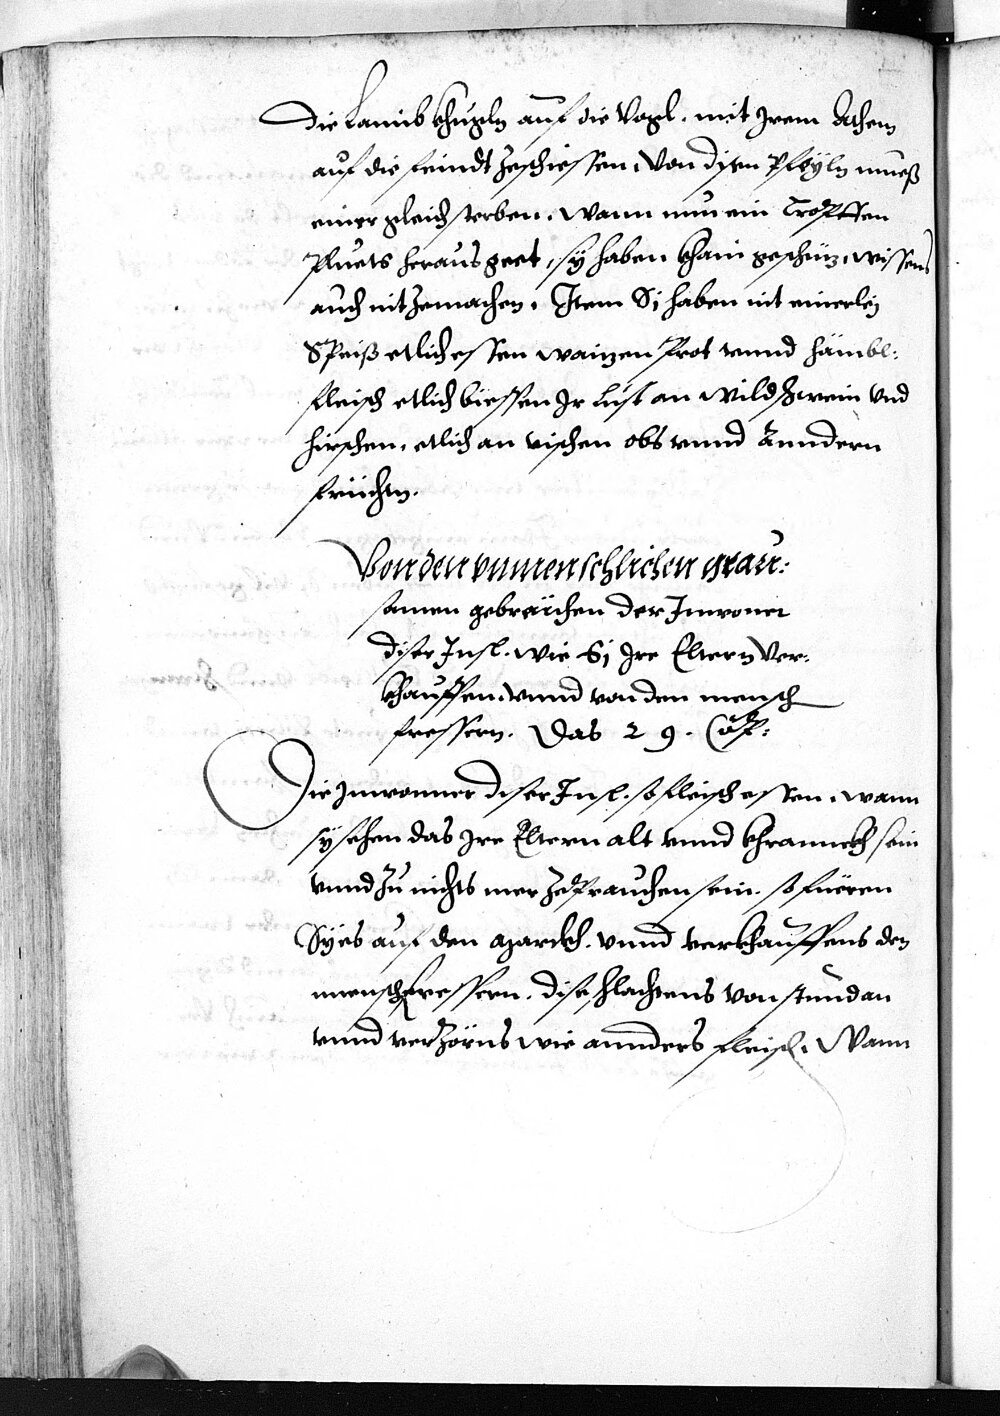 die Lamib khugln auf die Vogl. mit Irem Athem
auf die feindt zeschiessen, Von disen Pfeyln mueß
einer gleich sterben. wann nun ein Tropffen
Pluets heraus geet, sy haben khain geschüz, wissens
auch nit zemachen. Item Si haben nit einerley
Speiß etlich essen waizen Prot vnnd hämbl:
fleisch etlich biessen Ir lust an wildschwein vnd
hirschen, etlich an vischen obs vnnd Anndern
früchtn.
Von den vnmenschlichen grau:
samen gebreüchen der Inwoner
diser Insl. wie Si Ire Eltern Ver:
khauffen, vnnd von den mensch
fressern. Das 29. Cap:
Die Inwonner diser Insl. so fleisch essen. wann
sy sehen das Ire Eltern alt vnnd khrannckh sein
vnnd zu nichts mer zePrauchen sein. so fueren
Syes auf den Marckh. vnnd verkhauffens den
menschfressern. dise schlachtens von stund an
vnnd verzörns wie annders fleisch. Wann